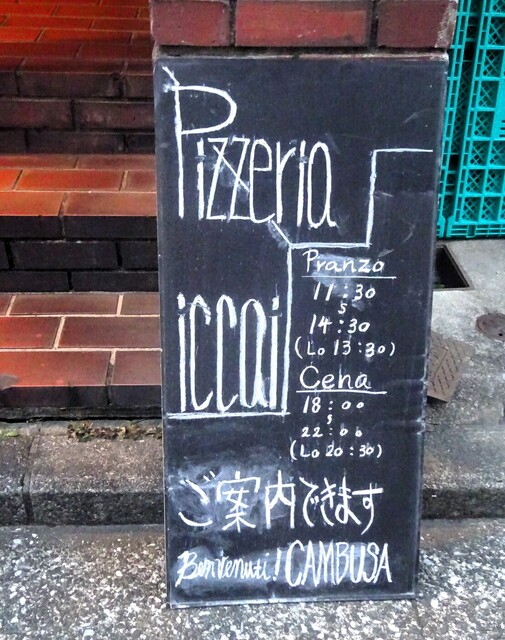 Pizzeria
iccai
Pranzo
11:30
~
14:30
(Lo 13:30)
Cena
18:00
~
22:00
(Lo 20:30)
ご案内できます
Benvenuti! CAMBUSA